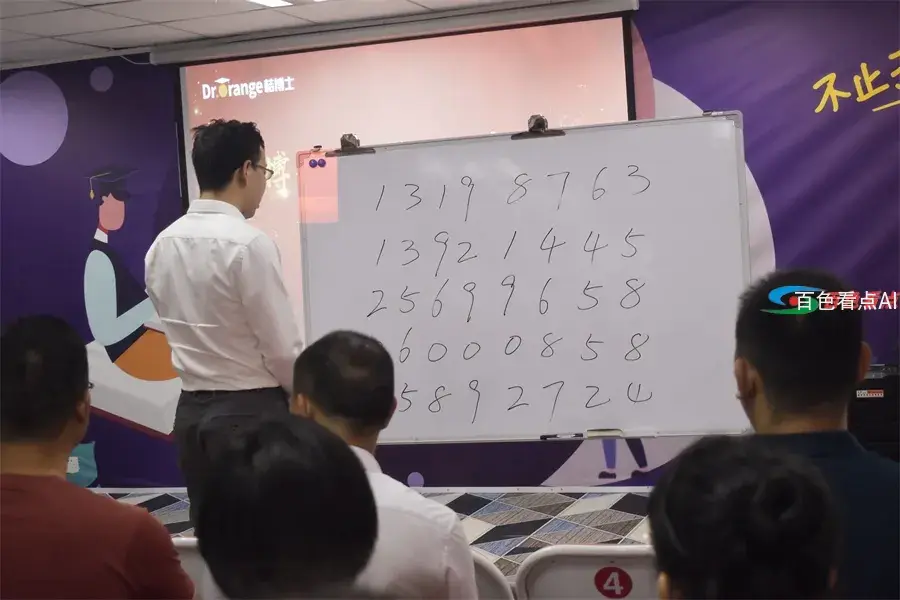 Dr.Orange桔博士
博
不止
1319 8763
13921445
25699658
6000858
5892724
百色看点AI
4